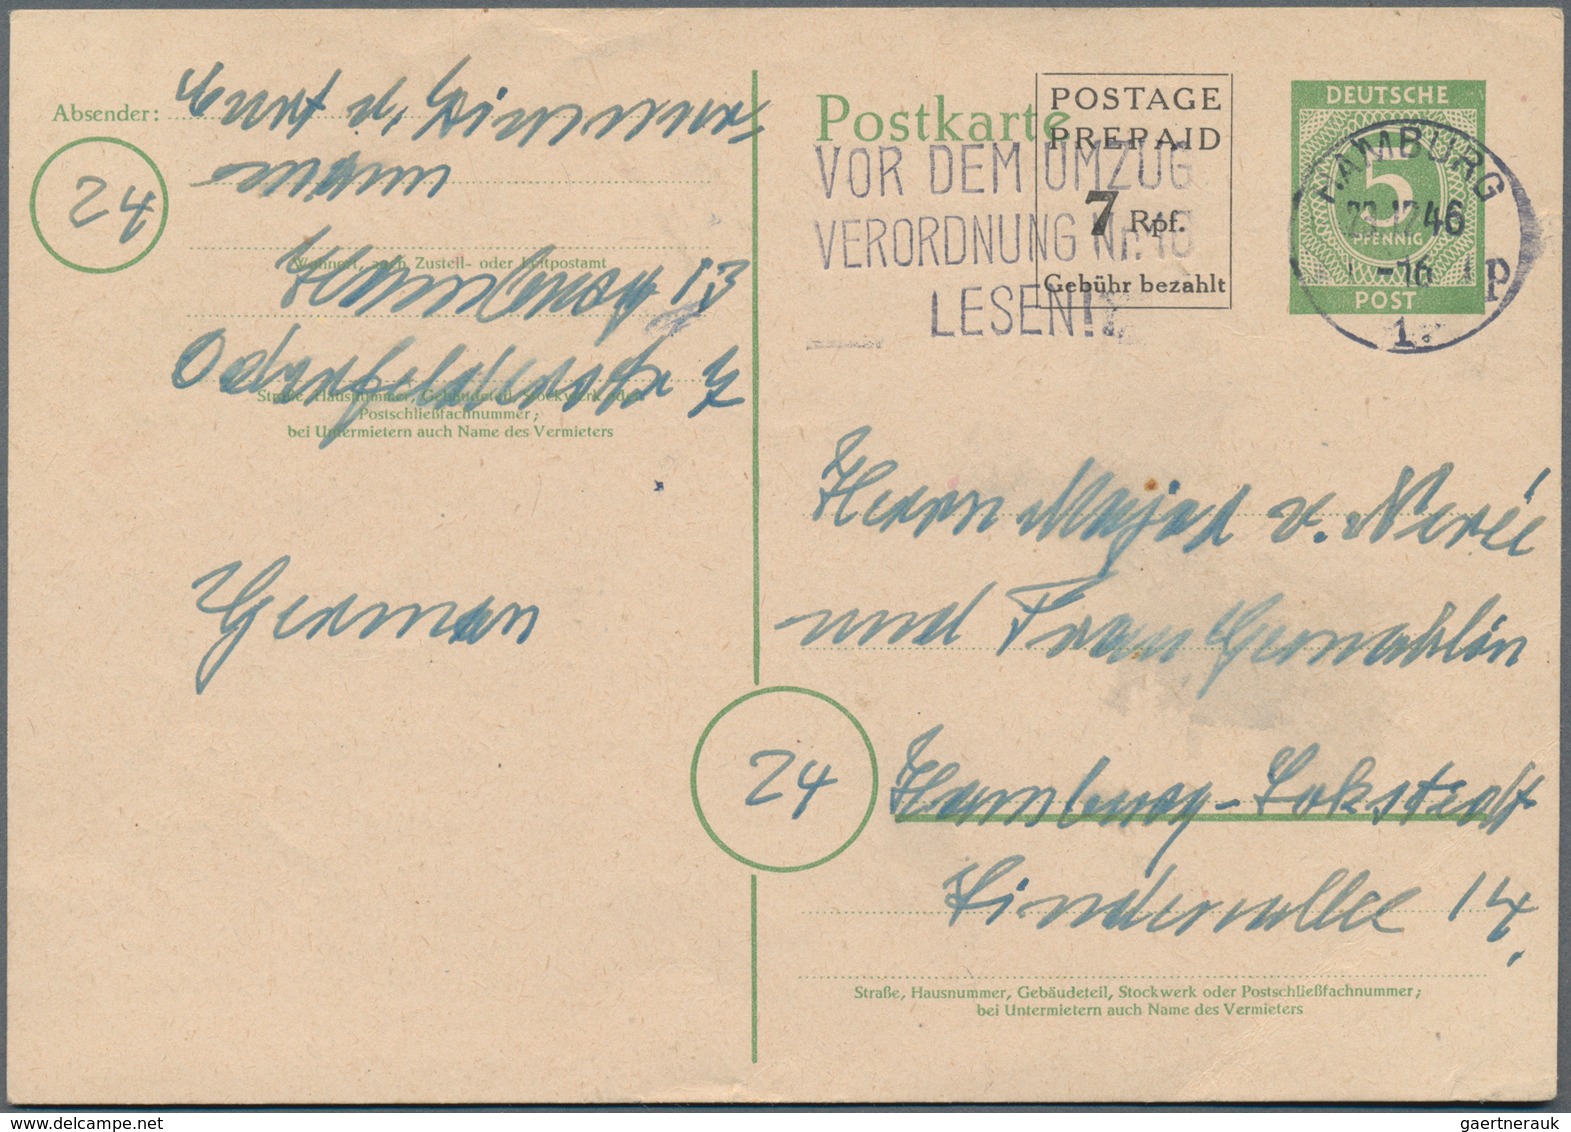 Absender:
24
mann
Wohnort, auch Zustell- oder Leitpostamt
Hamburg 13
Oderfelderstr 7
Straße, Hausnummer, Gebäudeteil, Stockwerk oder
Postschließfachnummer;
bei Untermietern auch Name des Vermieters
German
Postkarte
POSTAGE
PREPAID
7 Rpf.
Gebühr bezahlt
VOR DEM UMZUG
VERORDNUNG Nr. 16
LESEN!
DEUTSCHE
5
PFENNIG
POST
HAMBURG
46
-16
1
Herrn Major v. Nerée
und Frau Gemahlin
24
Hamburg-Lokstedt
Lindenallee 14.
Straße, Hausnummer, Gebäudeteil, Stockwerk oder Postschließfachnummer;
bei Untermietern auch Name des Vermieters
gaertnerauk